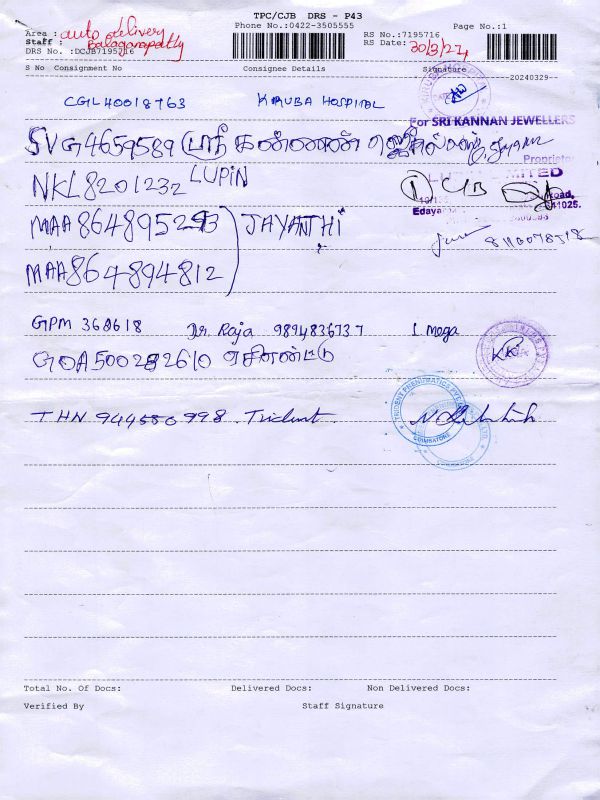 TPC/CJB DRS - P43
Phone No.:0422-3505555
Page No.:1
Area : auto delivery
Staff : Balaganapathy
DRS No. :DCJB7195716
RS No.:7195716
RS Date: 30/3/24
S No Consignment No Consignee Details Signature
20240329--
CGL40018763 KIRUBA HOSPITAL
For SRI KANNAN JEWELLERS
SVG4659589 ஸ்ரீ கண்ணன்
Proprietor
NKL8201232 LUPIN
MITED
Road,
Edaya
41025.
MAA864895293 JAYANTHI
8110078518
MAA864894812
GPM 368618 Dr. Raja 9894836737 I. Mega
GOA500282610 ஏசின்ட்டு
THN 944580998. Trident
TRIDENT PNEUMATICS PVT. LTD.
COIMBATORE
Total No. Of Docs: Delivered Docs: Non Delivered Docs:
Verified By Staff Signature